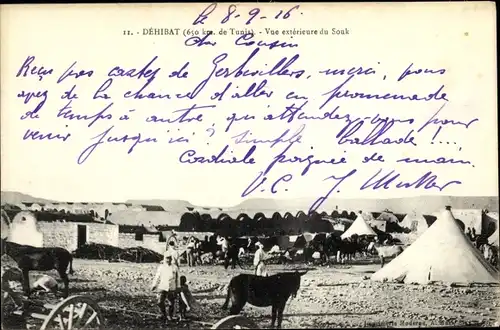 11. - DÉHIBAT (650 km. de Tunis). - Vue extérieure du Souk
Le 8-9-16
Cher Cousin
Reçu pas cartes de Gerbéviller, merci, vous
avez de la chance d'aller en promenade
de temps à autre, qu'attendez-vous pour
venir jusqu'ici? Simple ballade!...
Cordiale poignée de main.
V.C. J. Muller